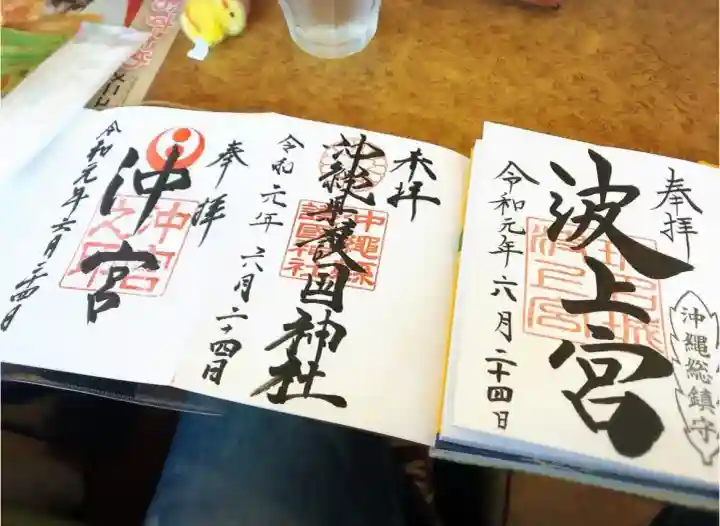 奉拝
波上宮
沖縄総鎮守
令和元年六月二十四日
奉拝
沖縄県護国神社
沖縄縣
護國神社
令和元年六月二十四日
奉拝
沖宮
沖宮
之印
令和元年六月二四日